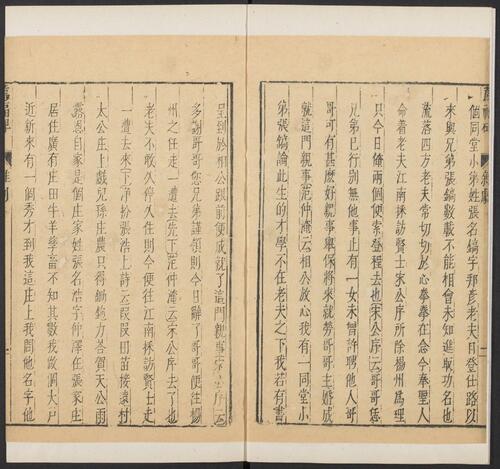 個同堂小弟姓張名鎬字邦彥老夫自登仕路以
來與兄弟張鎬數載不能相會未知進取功名也
流落四方老夫常切切於心拳拳在念今奉聖人
命着老夫江南採訪賢士宋公序所除揚州爲理
只今日俺兩個便索登程去也宋公序云哥哥您
兄弟已行別無他事止有一女未曾許聘他人哥
哥可有甚麼好親事舉保將來就勞哥哥主婚成
就這門親事范仲淹云相公放心我有一同堂小
弟張鎬論此生的才學不在老夫之下我若有書
呈到於相公跟前便成就了這門親事宋公序云
多謝哥哥您兄弟謹領則今日辭了哥哥便往揚
州之任走一遭去先下范仲淹云宋公序去了也
老夫不敢久停久住則今便往江南採訪賢士走
一遭去來下淨扮張浩上詩云段段田苗接遠村
太公庄上戲兒孫庄農只得鋤鉋力答賀天公雨
露恩自家是個庄家姓張名浩字仲澤在張家庄
居住廣有庄田牛羊孳畜不知其數我放個大戶
近新來有一個秀才到我這庄上我問他名字他
薦福碑
雜劇